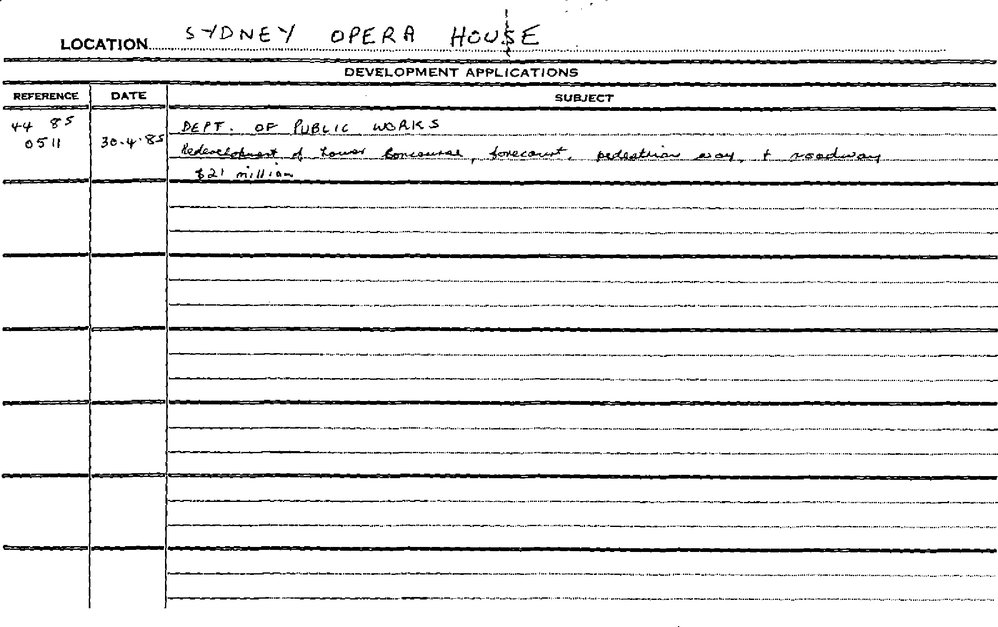 LOCATION SYDNEY OPERA HOUSE
DEVELOPMENT APPLICATIONS
REFERENCE DATE SUBJECT
44 85 DEPT. OF PUBLIC WORKS
0511 30.4.85 Redevelopment of Lower Concourse, forecourt, pedestrian way, + roadway
$21 million